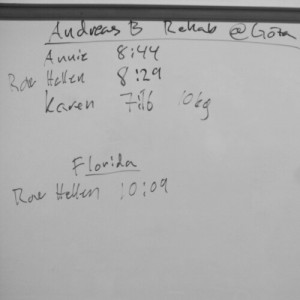 Andreas B Rehab @Göta
Annie 8:44
Rose Hellen 8:29
Karen 7:16 10kg
Florida
Rose Hellen 10:09